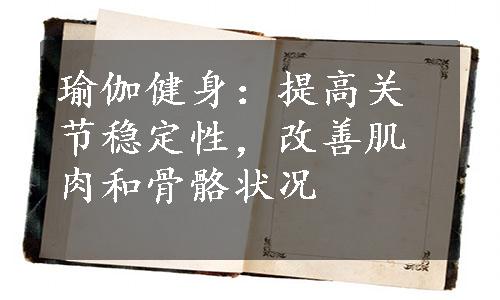 瑜伽健身：提高关
节稳定性，改善肌
肉和骨骼状况